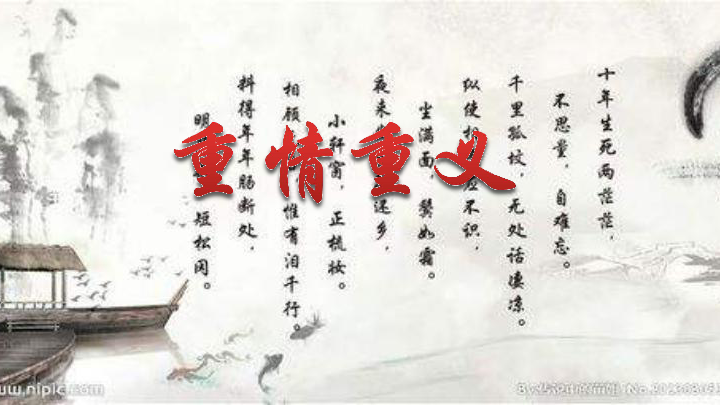 重情重义
十年生死两茫茫，
不思量，自难忘。
千里孤坟，无处话凄凉。
纵使 应不识，
尘满面，鬓如霜。
夜来 还乡，
小轩窗，正梳妆。
相顾 惟有泪千行。
料得年年肠断处，
明 短松冈。
www.nipic.com